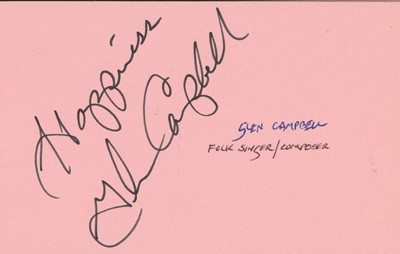 Happiness
Glen Campbell
GLEN CAMPBELL
FOLK SINGER/COMPOSER